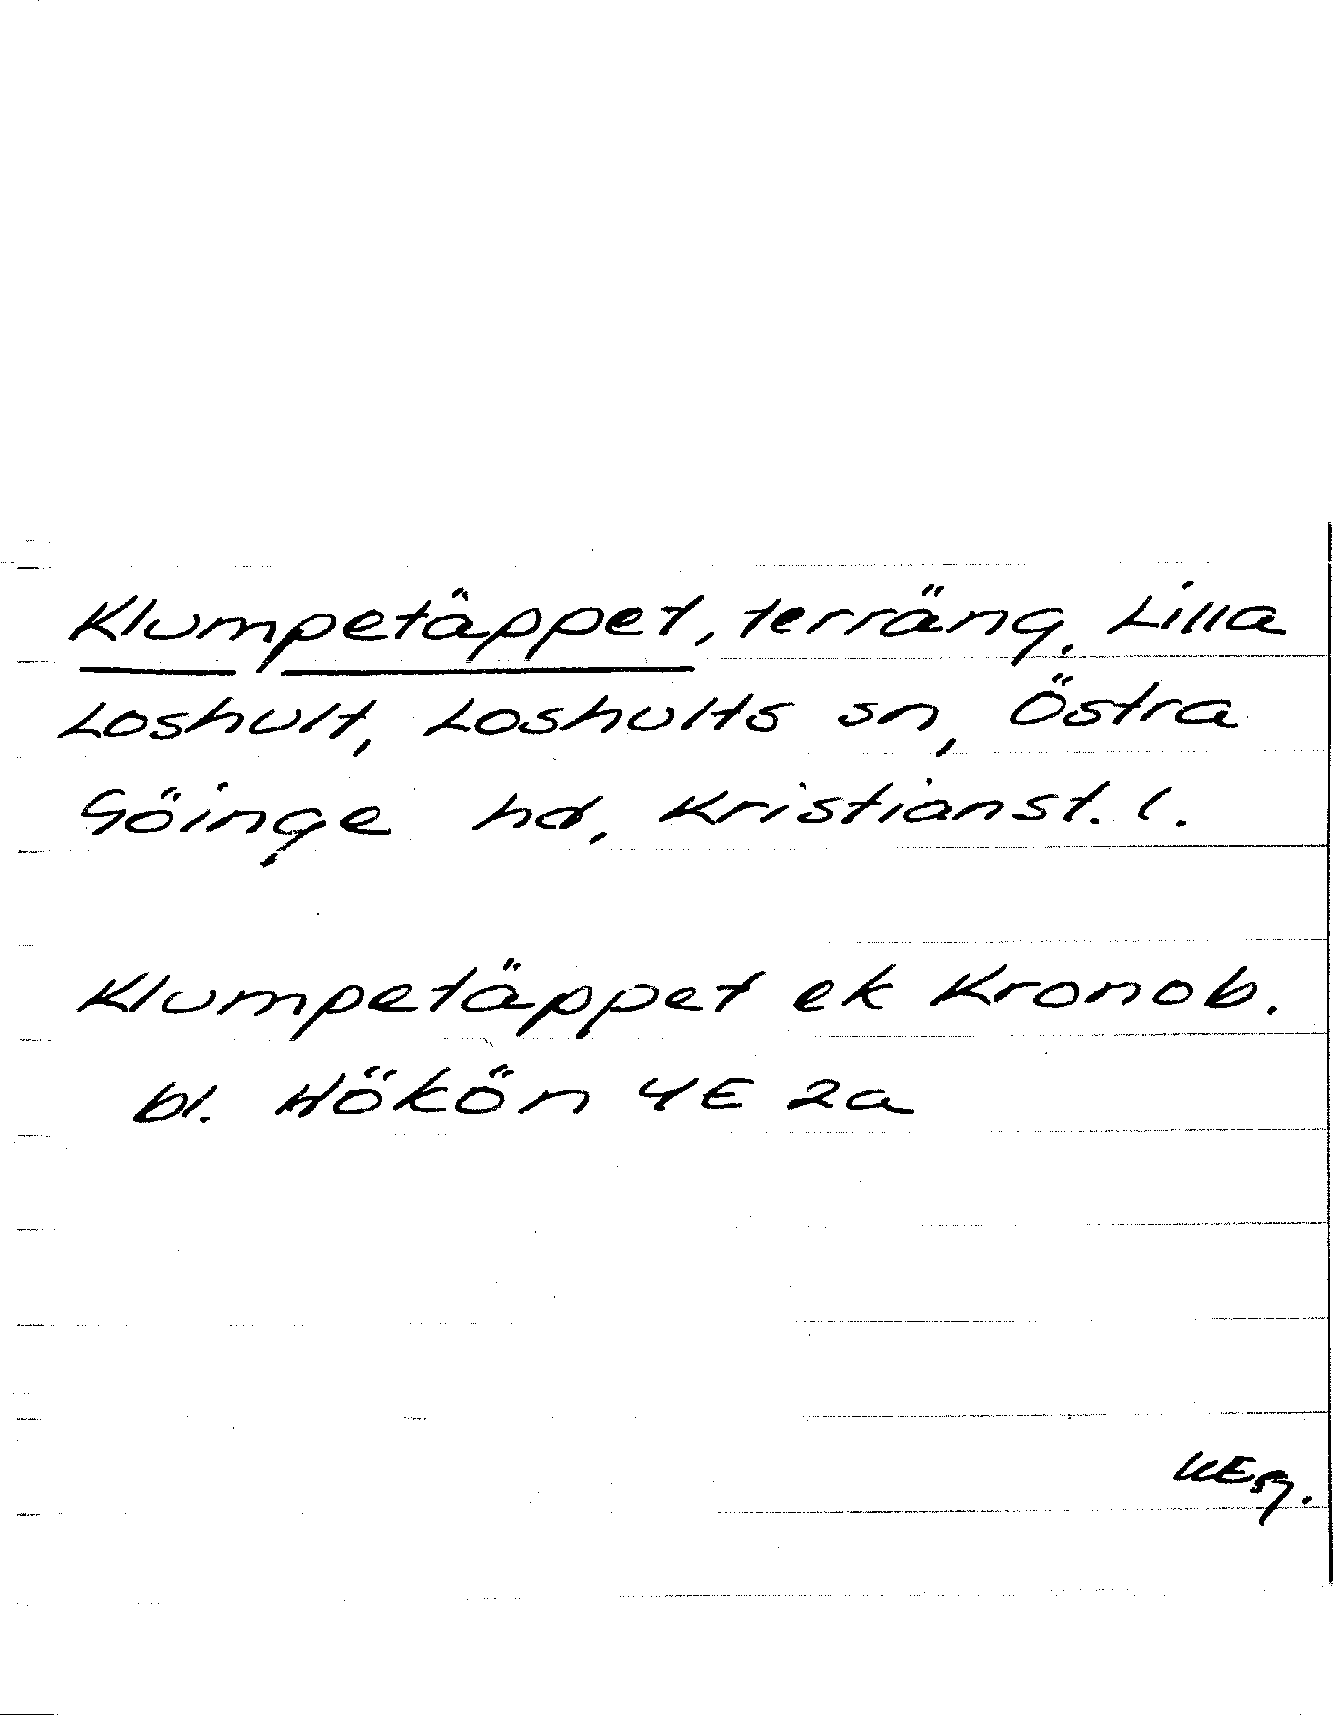 Klumpetäppet, terräng, Lilla
Loshult, Loshults sn, Östra
Göinge hd, Kristianst. l.
Klumpetäppet ek Kronob.
bl. Hökön 4E 2a